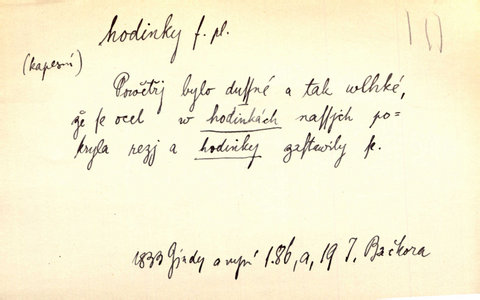 hodinky f. pl.
(kapesní)
Powětřj bylo dussné a tak wlhké,
že se ocel w hodinkách nassjch po=
kryla rezj a hodinky zastawily se.
1833 Gindy a nynj 1.86, a, 19 J. Bačkora